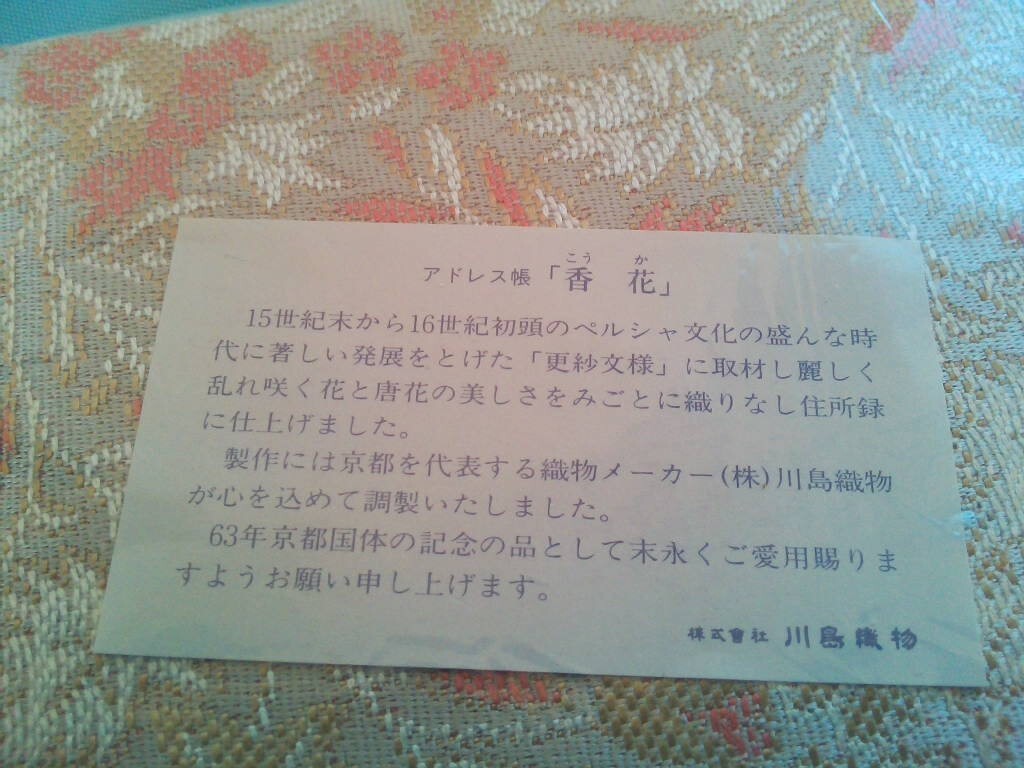 アドレス帳「香花」
15世紀末から16世紀初頭のペルシャ文化の盛んな時
代に著しい発展をとげた「更紗文様」に取材し麗しく
乱れ咲く花と唐花の美しさをみごとに織りなし住所録
に仕上げました。
製作には京都を代表する織物メーカー(株)川島織物
が心を込めて調製いたしました。
63年京都国体の記念の品として末永くご愛用賜りま
すようお願い申し上げます。
株式會社 川島織物